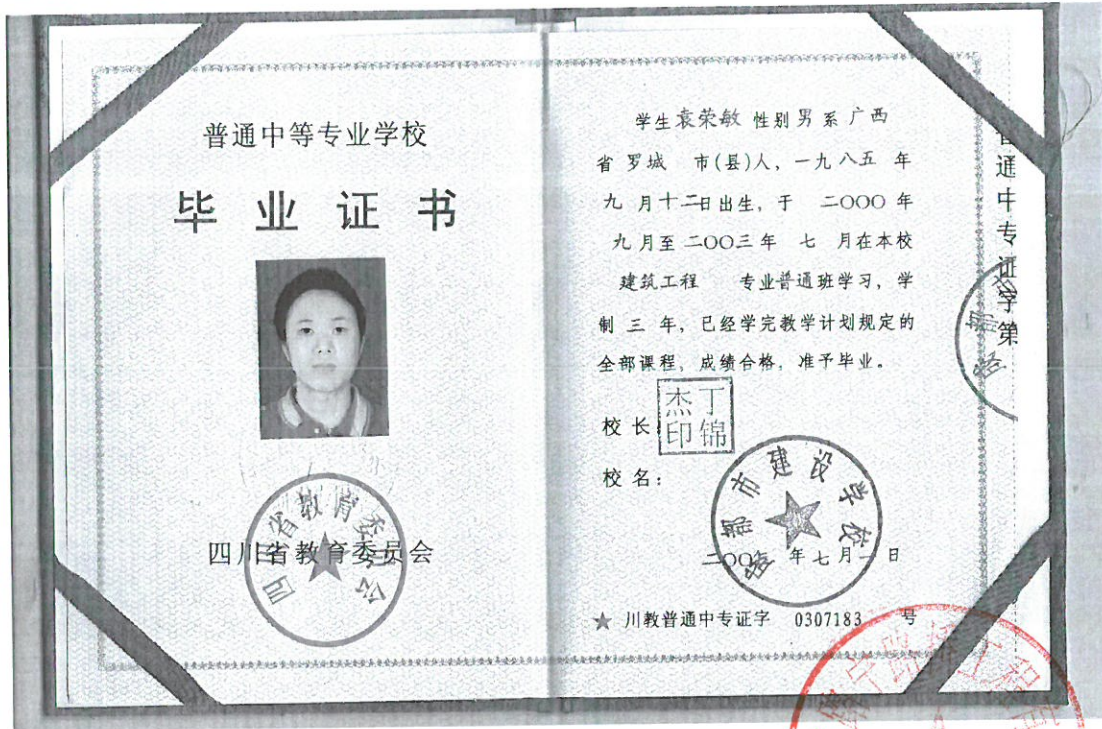 普通中等专业学校
毕业证书
四川省教育委员会
四川省教育委员会
学生袁荣敏 性别男系广西
省罗城 市(县)人，一九八五 年
九月十二日出生，于 二〇〇〇年
九月至二〇〇三年 七 月在本校
建筑工程 专业普通班学习，学
制 三 年，已经学完教学计划规定的
全部课程，成绩合格，准予毕业。
校长
丁锦杰印
校名：
成都市建设学校
年七月一日
★ 川教普通中专证字 0307183 号
普通中专证字第